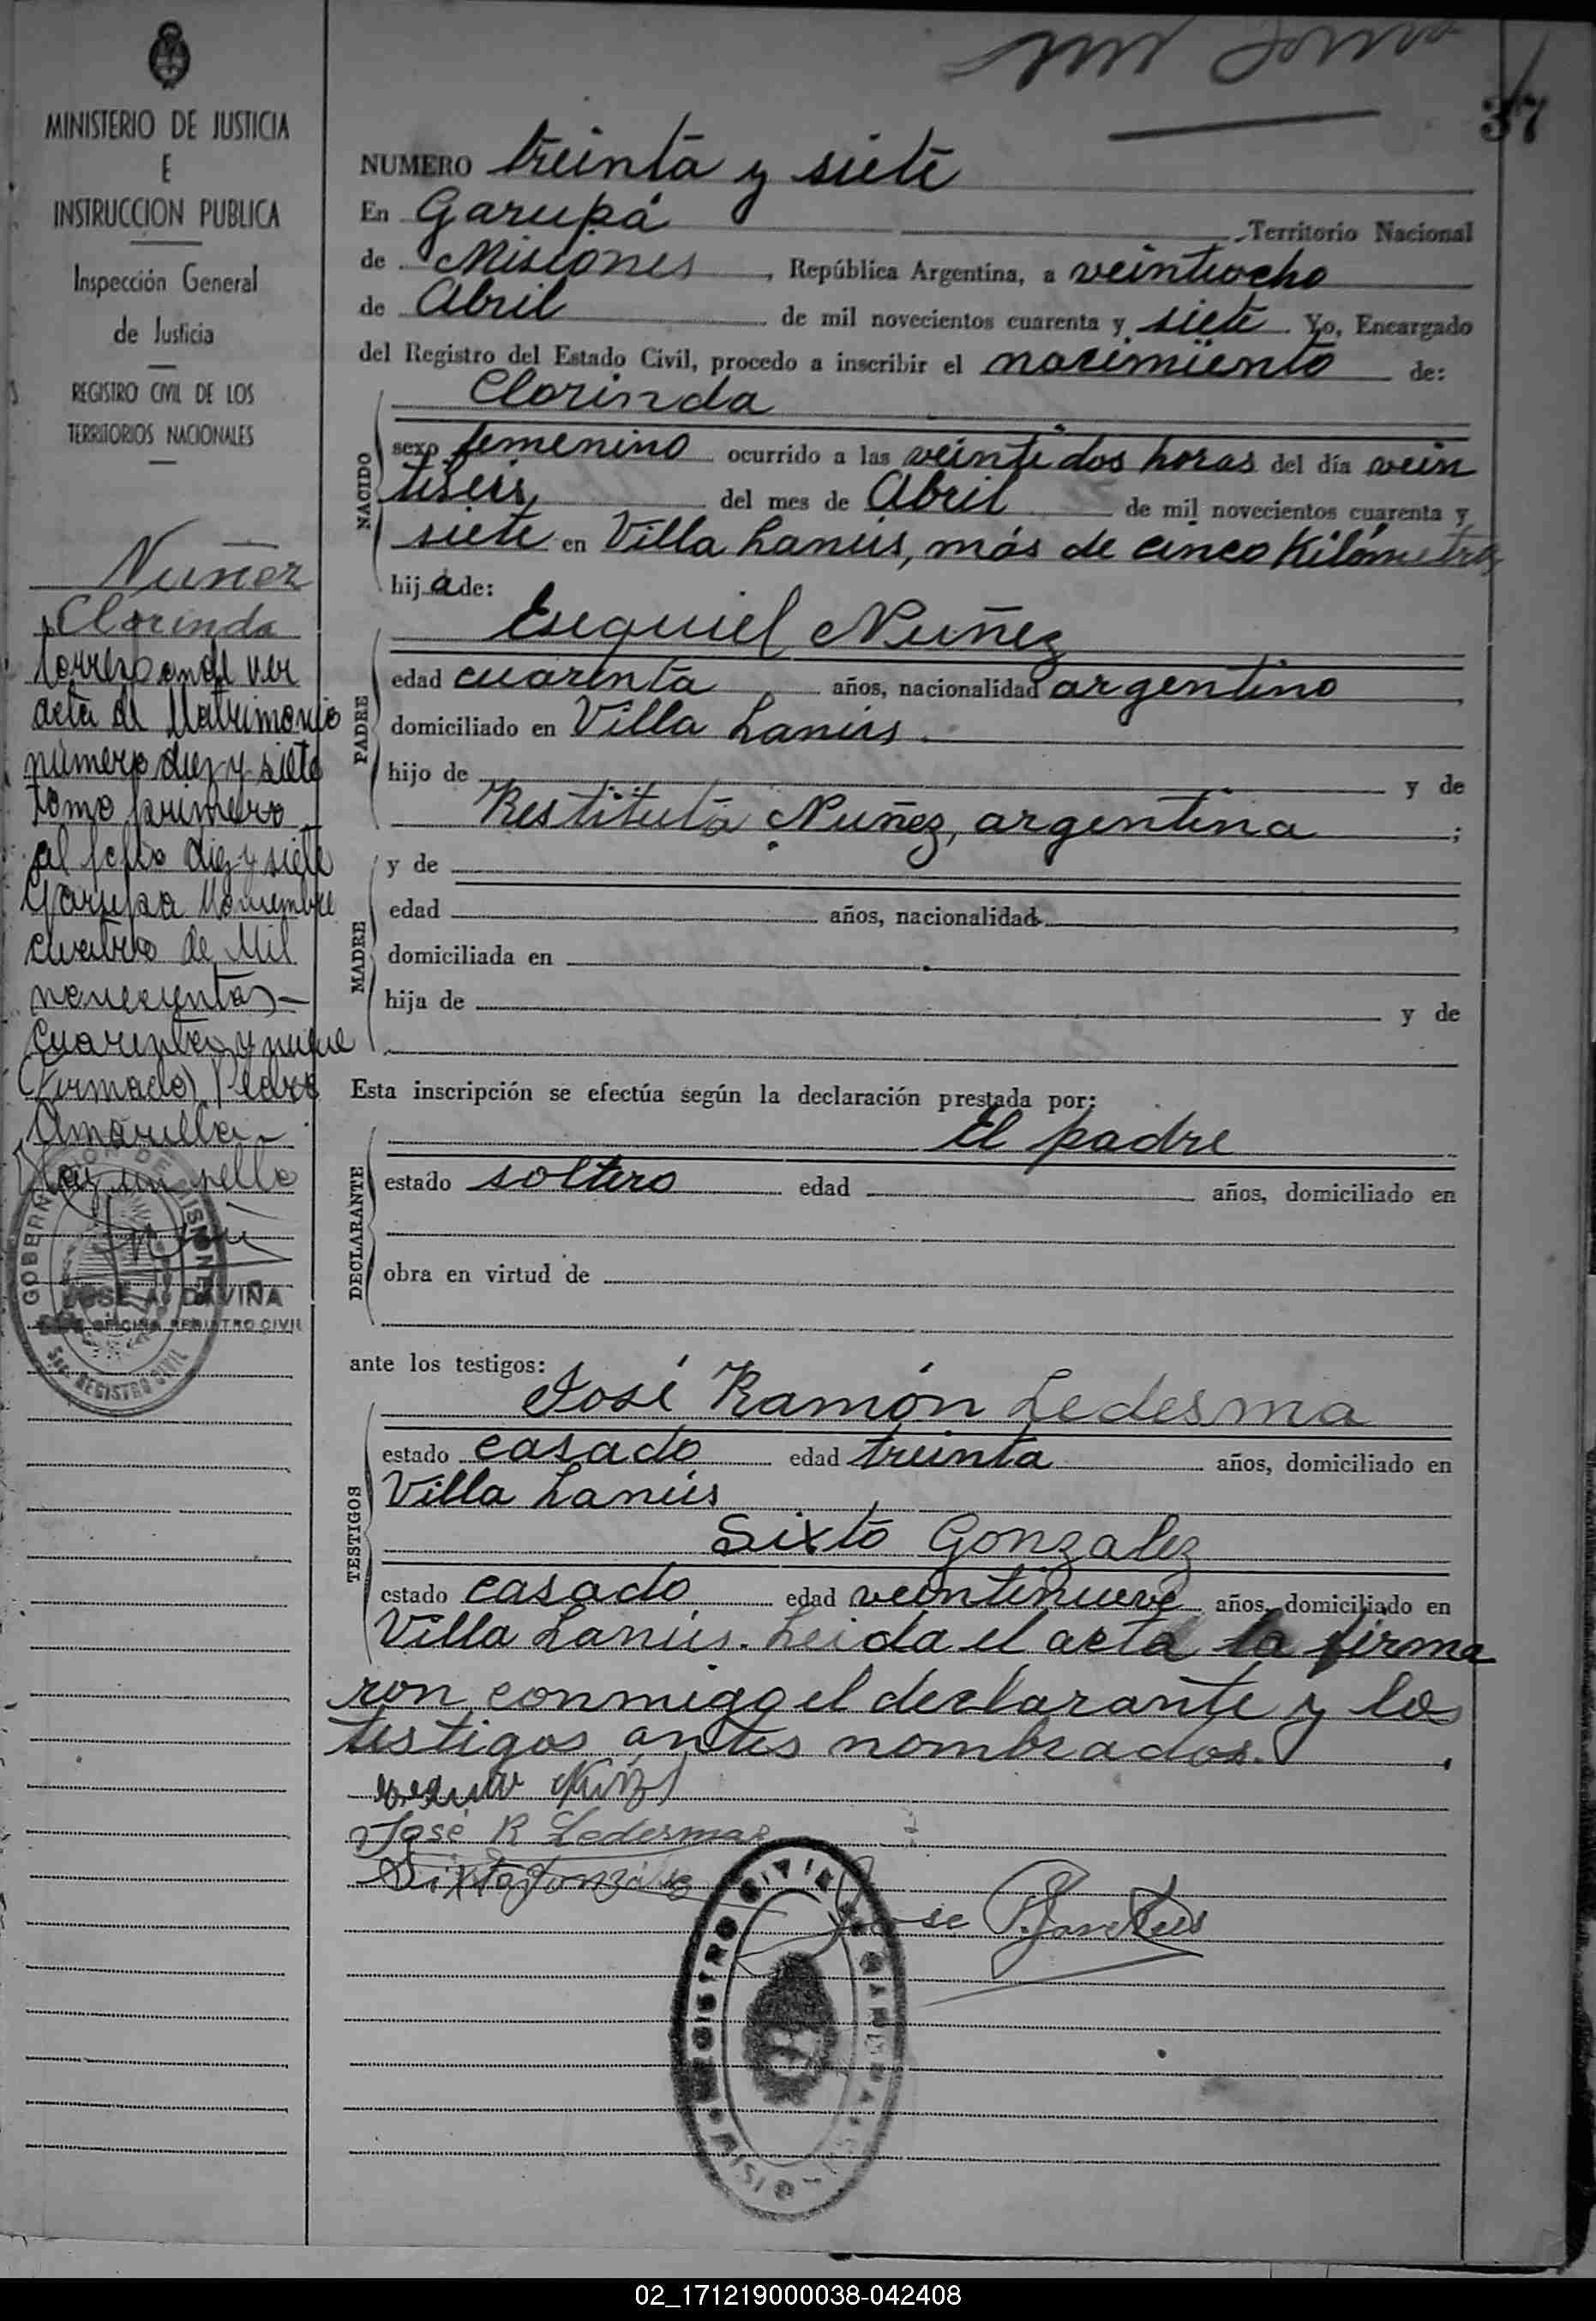 37
MINISTERIO DE JUSTICIA
E
INSTRUCCION PUBLICA
Inspección General
de Justicia
REGISTRO CIVIL DE LOS
TERRITORIOS NACIONALES
Nuñez
Clorinda
Corresponde ver
acta de Matrimonio
número diez y siete
tomo primero
al folio diez y siete
Garupa Noviembre
cuatro de Mil
novecientos
cuarenta y nueve
(Firmado) Pedro
Amarilla
Hay un sello
GOBERNACION DE MISIONES
JOSE A. DAVIÑA
OFICINA REGISTRO CIVIL
Sec. REGISTRO CIVIL
NUMERO treinta y siete
En Garupá Territorio Nacional
de Misiones, República Argentina, a veintiocho
de Abril de mil novecientos cuarenta y siete. Yo, Encargado
del Registro del Estado Civil, procedo a inscribir el nacimiento de:
NACIDO
Clorinda
sexo femenino ocurrido a las veinti dos horas del día vein
tiseis, del mes de Abril de mil novecientos cuarenta y
siete en Villa Lanús, más de cinco Kilómetros
hij a de:
PADRE
Esequiel Nuñez
edad cuarenta años, nacionalidad argentino
domiciliado en Villa Lanús.
hijo de y de
Restituta Nuñez, argentina ;
MADRE
y de
edad años, nacionalidad
domiciliada en
hija de y de
Esta inscripción se efectúa según la declaración prestada por:
DECLARANTE
El padre
estado soltero edad años, domiciliado en
obra en virtud de
ante los testigos:
TESTIGOS
José Ramón Ledesma
estado casado edad treinta años, domiciliado en
Villa Lanús
Sixto Gonzalez
estado casado edad veintinueve años, domiciliado en
Villa Lanús. Leida el acta la firma
ron conmigo el declarante y los
testigos antes nombrados.
José R Ledesma
Sixto González
Jose
REGISTRO CIVIL
02_171219000038-042408